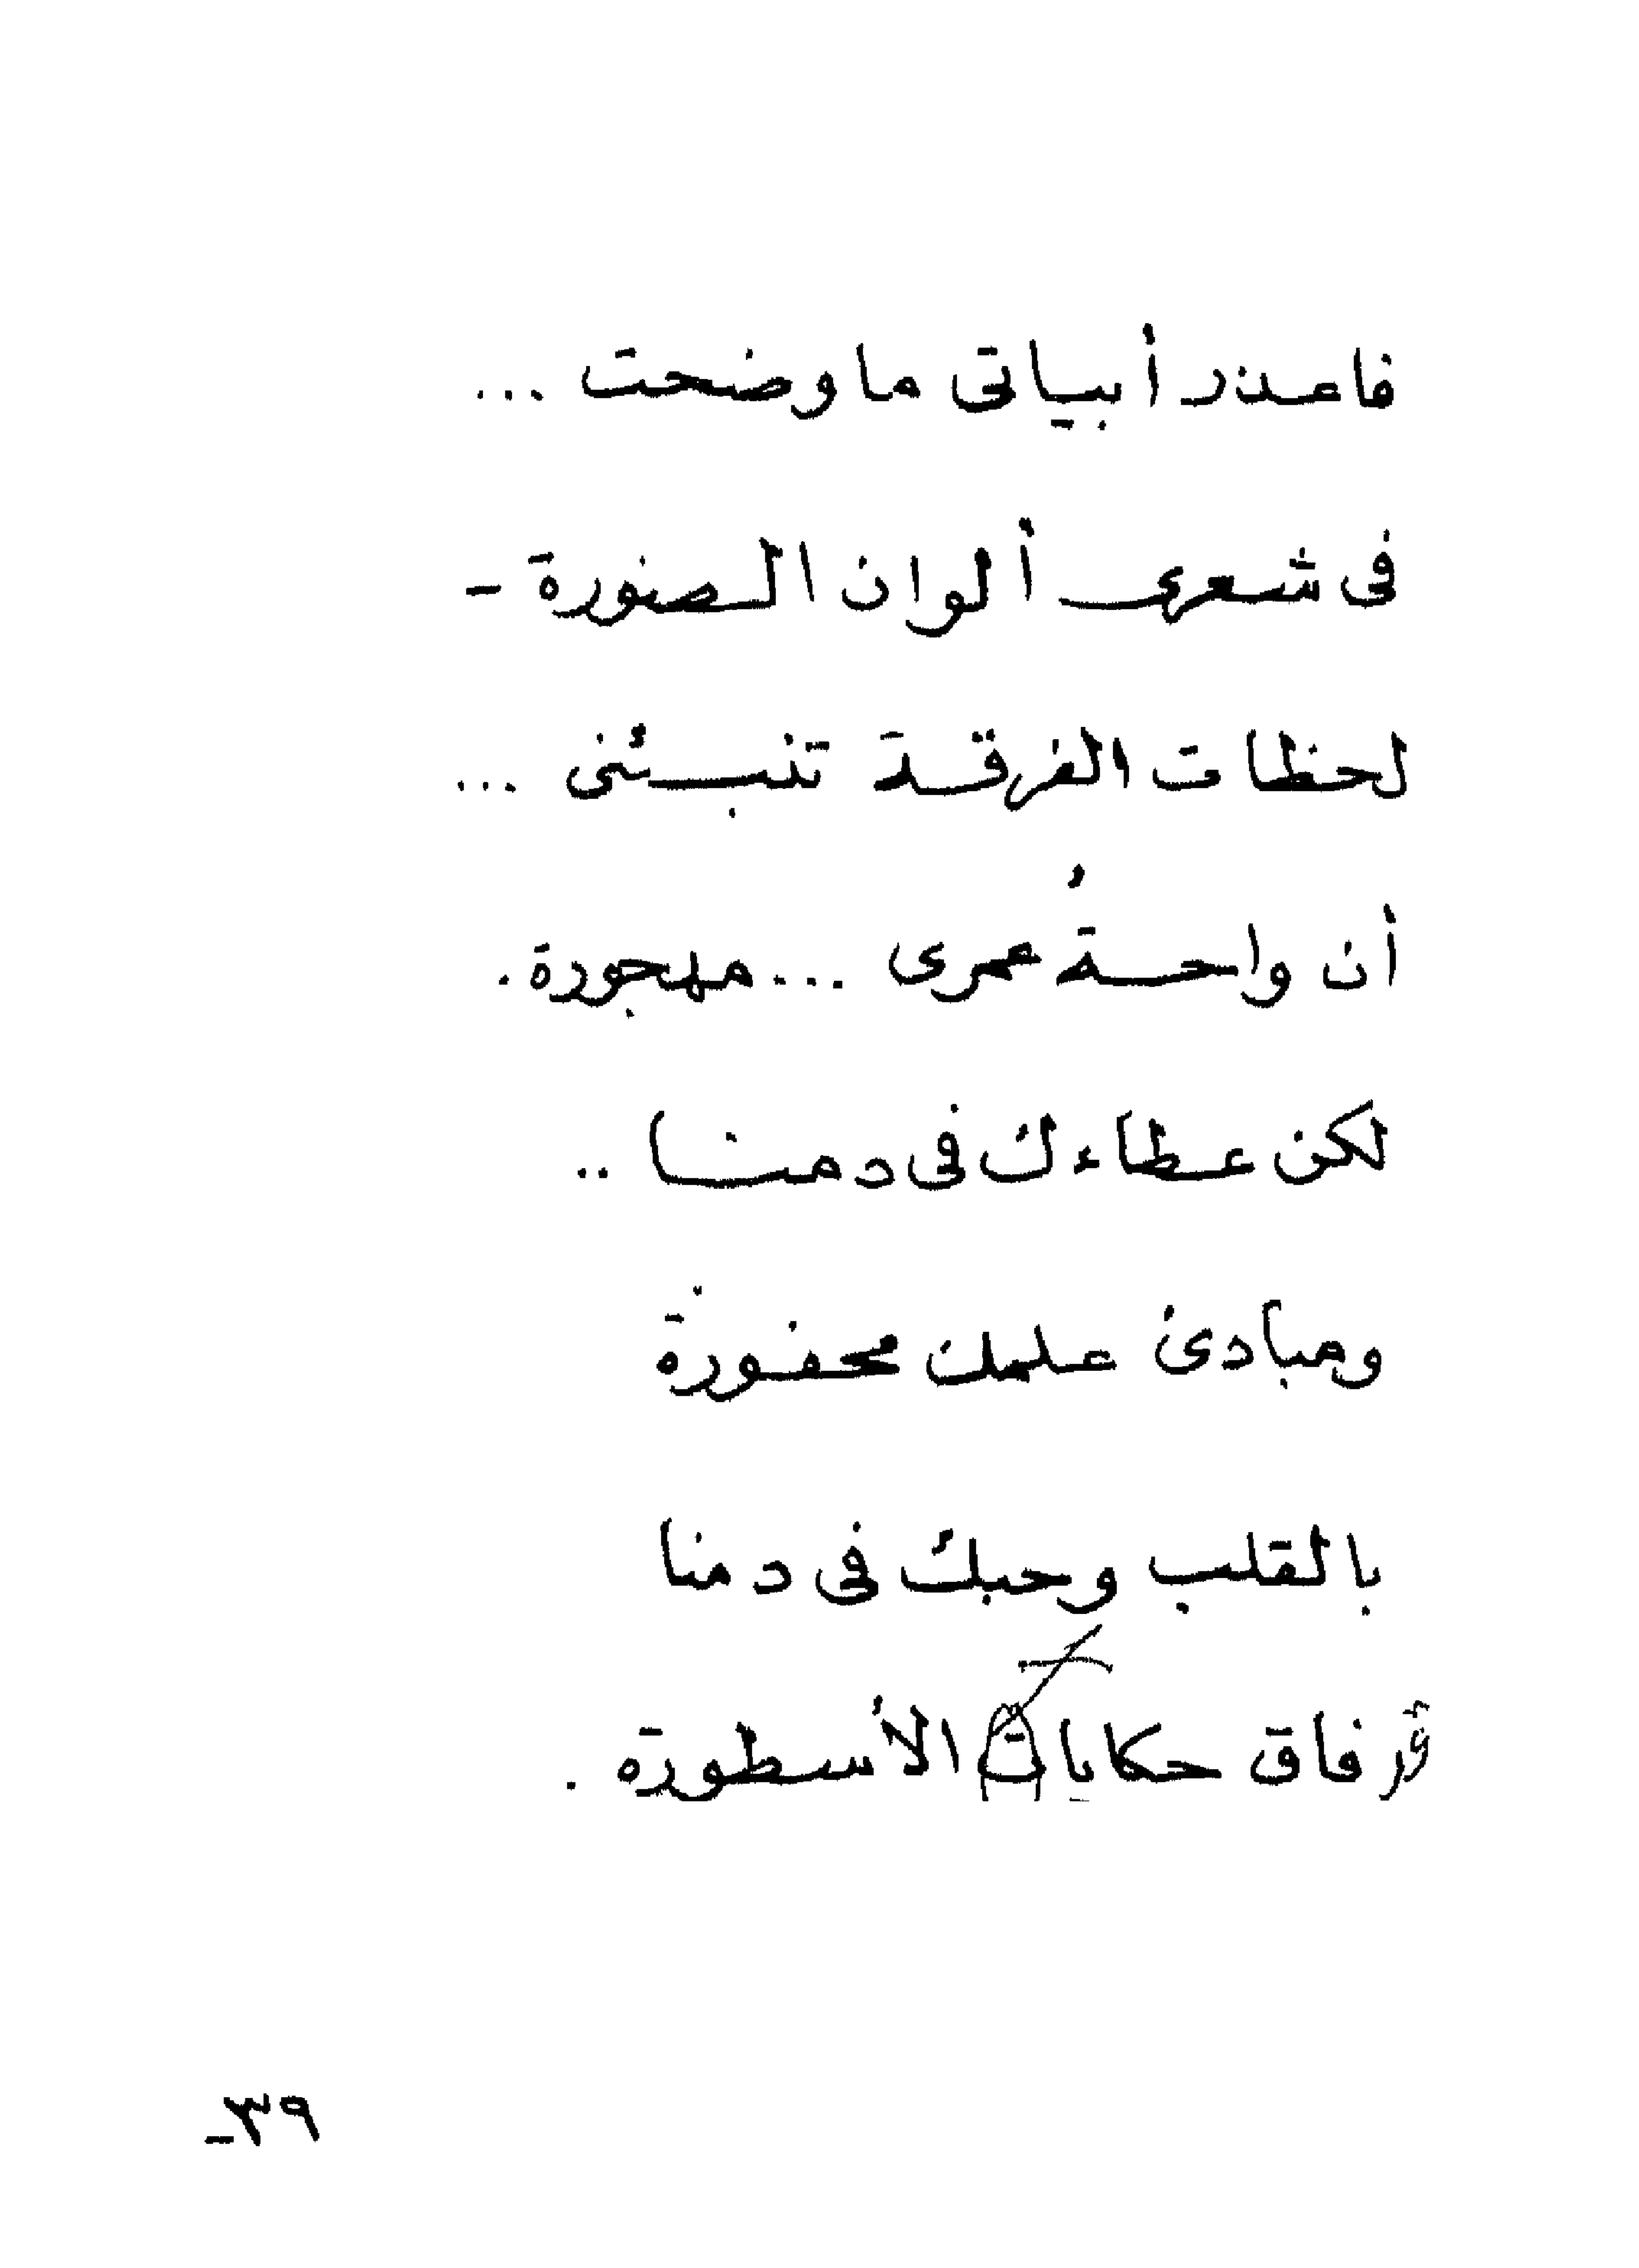 فاعذر أبياتى ما وضحت ...
فى شعرى ألوان الصنورة -
لحظات الفرقة تنبئنى ...
أن واحةُ عمرى ... مهجورة .
لكن عطاءك فى دمنا ..
ومبادئ علمك محفورة
بالقلب وحبك فى دمنا
فاق حكايات الأسطورة .
٣٩-